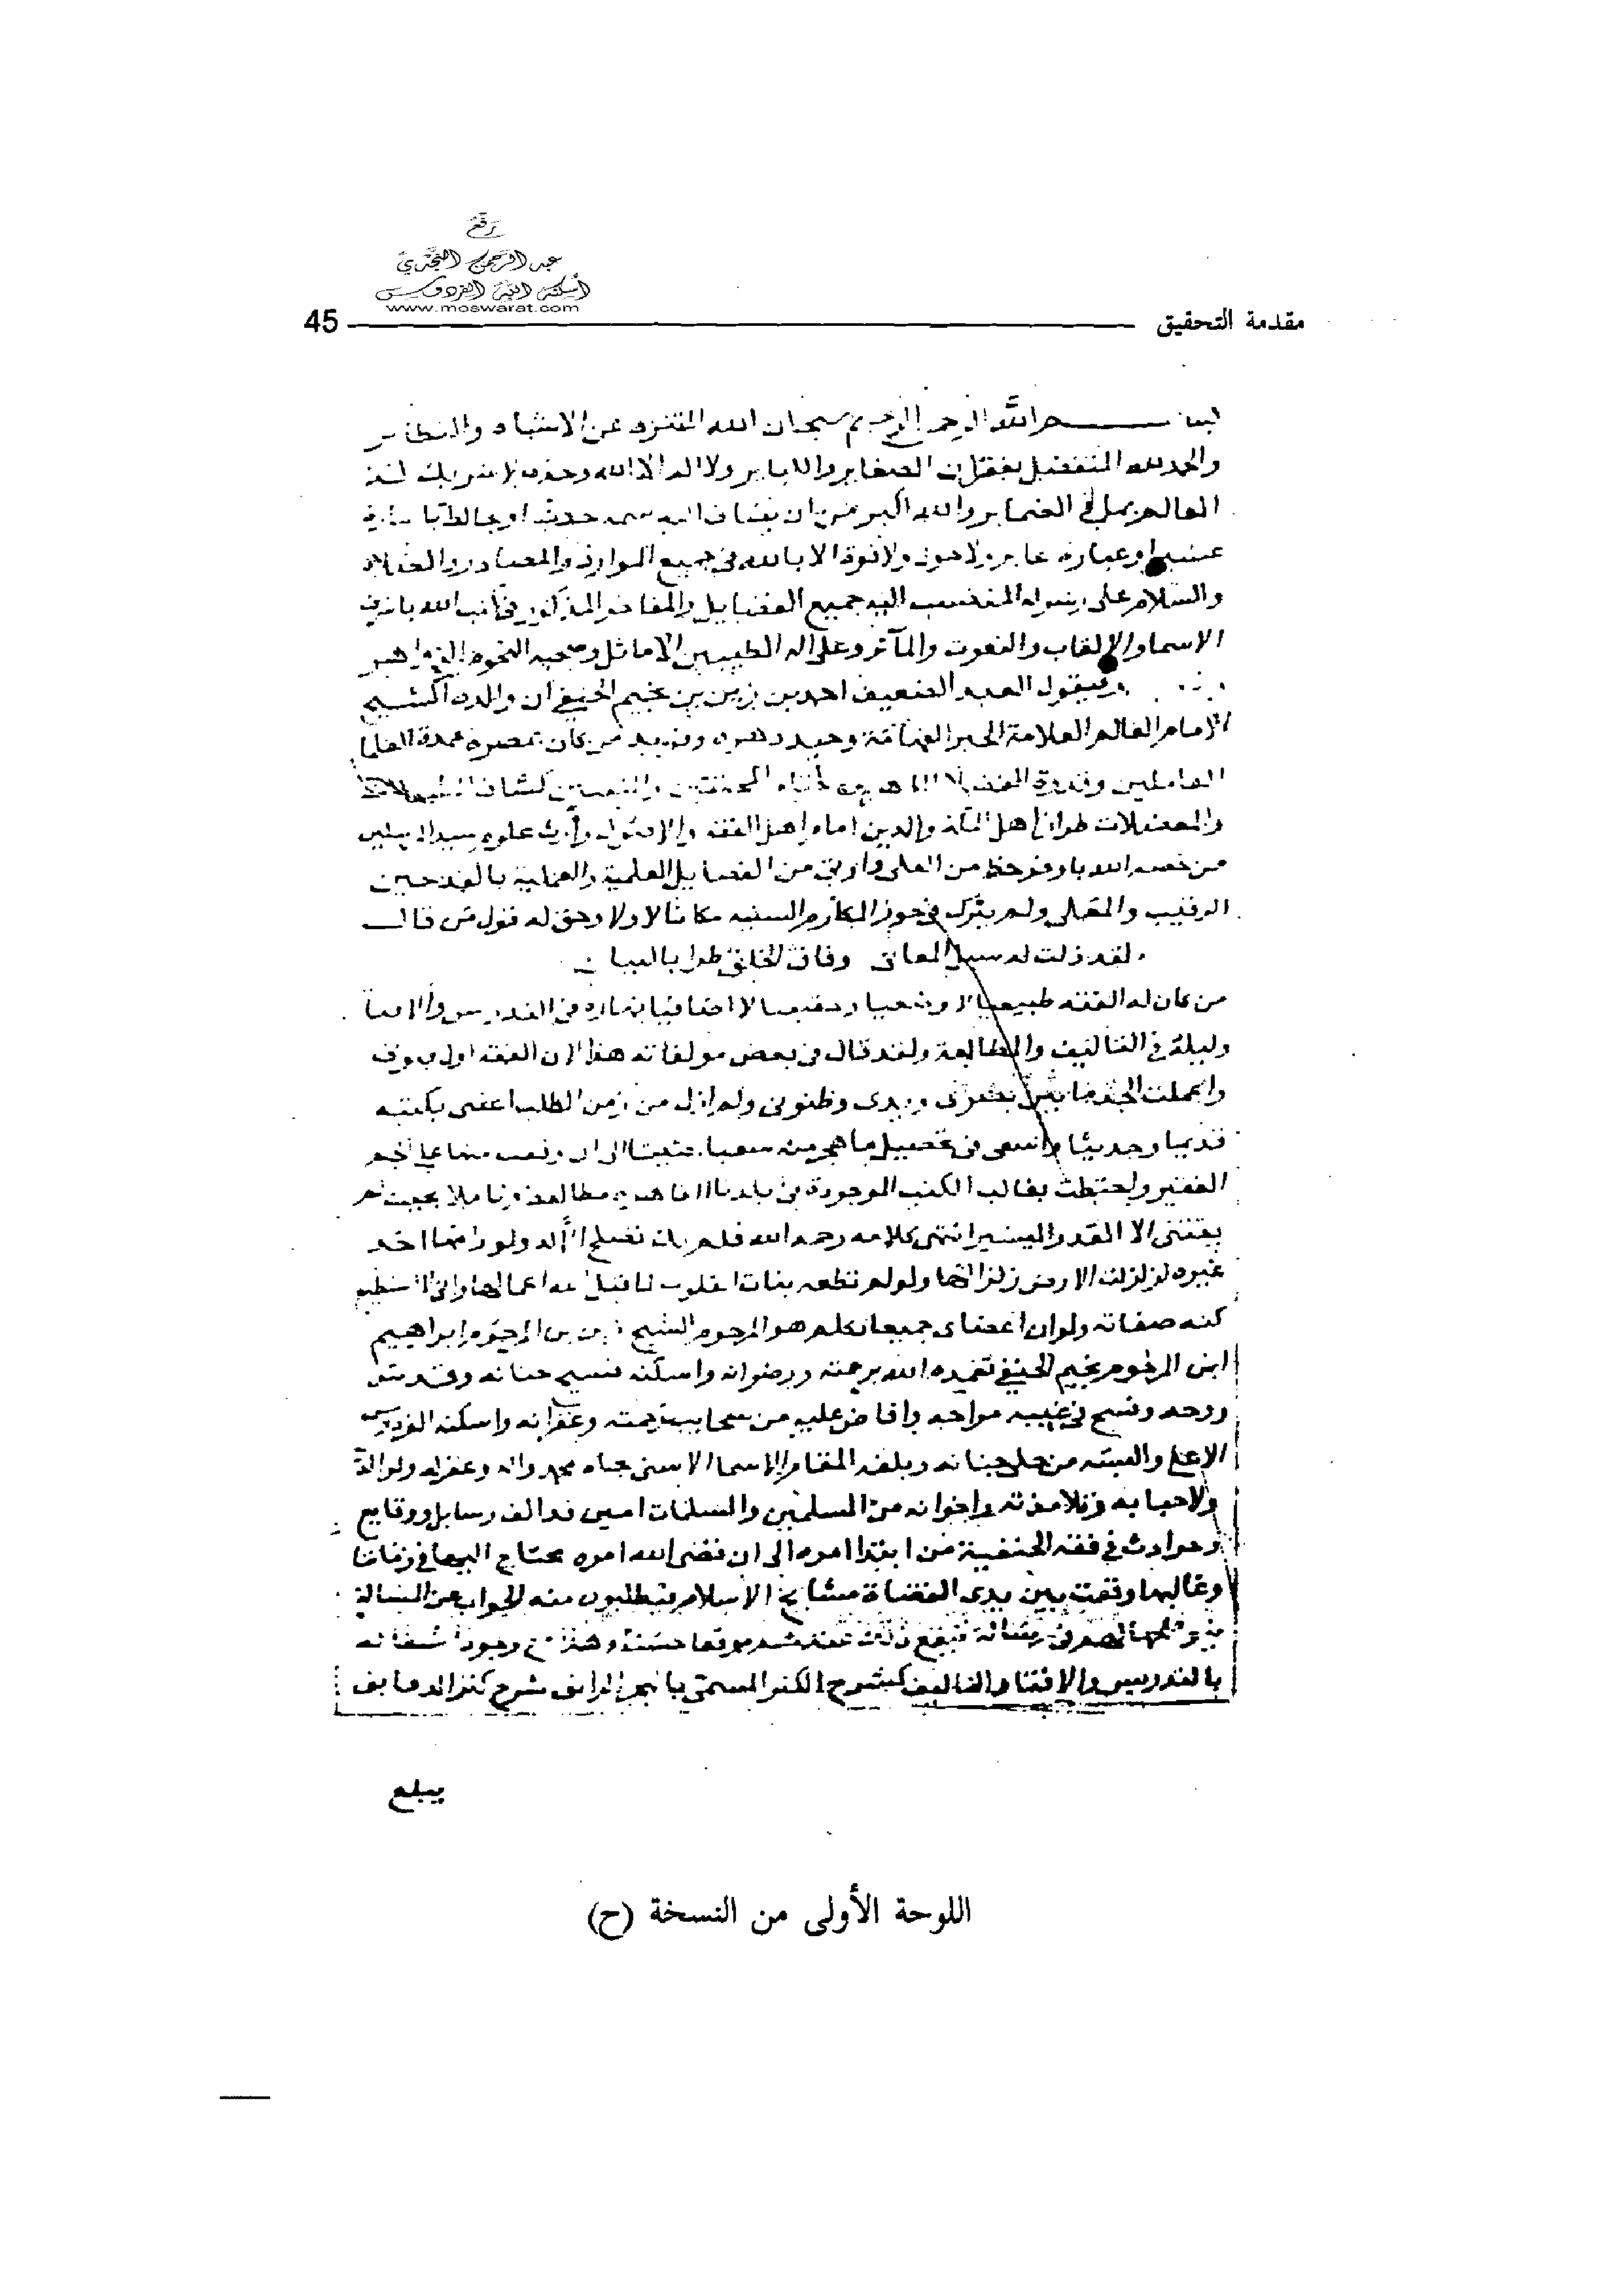 رقع
عبد الرحمن النجدي
أسكنه الله الفردوس
www.moswarat.com
مقدمة التحقيق 45
بسم الله الرحمن الرحيم سبحان الله المتنزه عن الاشباه والنظاير
والحمد لله المتفضل بغفران الصغاير والكباير ولا اله الا الله وحده لا شريك له
العالم بما في الضماير والله اكبر من ان يضاف اليه حدث او
عابر ولا حول ولا قوة الا بالله في جميع الموارد والمصادر والصلاة
والسلام على رسوله المنتسب اليه جميع الفضايل والمفاخر المذكور في كتب الله باشرف
الاسما والالقاب والنعوت والمآثر وعلى اله الطيبين الاماثل وصحبه النجوم الزواهر
فيقول العبد الضعيف احمد بن زين بن نجيم الحنفي ان والده الشيخ
الامام العالم العلامة الحبر الفهامة وحيد دهره وفريد من كان بمصره عمدة العلما
العاملين وقدوة الفضلا الماهرين المحققين والمفتين كشاف
والمعضلات طراز اهل الملة والدين امام اهل الفقه والاصول وارث علوم سيد المرسلين
من خصه الله باوفر حظ من العلى واوتي من الفضايل العلمية والعملية بالقدحين
الرقيب والمعلى ولم يترك في حوز المكارم السنيه مكانا لا ولا وحق له قول من قال
لقد ذلت له سبل المعاني وفاق الخلق طرا بالبيان
من كان له الفقه طبيعيا لا وضعيا وحقيقيا لا اضافيا نهاره في التدريس والافتا
وليله في التاليف والمطالعة ولقد قال في بعض مولفاته هذا لان الفقه اول فنوني
واعملت الجد ما بين بصري ويدي وظنوني ولم ازل من زمن الطلب اعتني بكتبه
قديما وحديثا واسعى في تحصيل ما هجر منه سعيا حثيثا الى ان وقفت منها على الجم
الغفير واحتطت بغالب الكتب الموجودة في بلدنا القاهره مطالعة وتاملا بحيث لم
يفتني الا القدر اليسير انتهى كلامه رحمه الله فلم يك تصلح الا له ولو رامها احد
غيره لزلزلت الارض زلزالها ولو لم تطعه بنات القلوب لما قبل الله اعمالها واني لا استطيع
كنه صفاته ولو ان اعضاي جميعا تكلم هو المرحوم الشيخ زين بن المرحوم ابراهيم
ابن المرحوم نجيم الحنفي تغمده الله برحمته ورضوانه واسكنه فسيح جنانه وقدس
روحه وفسح في مراحه وافاض عليه من سحايب رحمته وغفرانه واسكنه الفردوس
الاعلى والبسه من حلي جنانه وبلغه المقام الاسما الاسنى بجاه محمد واله وغفر له ولوالديه
ولاحبابه وتلامذته واخوانه من المسلمين والمسلمات امين قد الف رسايل ووقايع
وحوادث في فقه الحنفية من ابتدا امره الى ان قضى الله امره يحتاج اليها في زماننا
وغالبها وقعت بين يدي القضاة مشايخ الاسلام فيطلبون منه الجواب عن المسالة
فيقع ذلك عندهم موقعا حسنا وهذا مع وجود اشتغاله
بالتدريس والافتا والتاليف كشرح الكنز المسمى بالبحر الرايق شرح كنز الدقايق
يبلع
اللوحة الأولى من النسخة (ح)